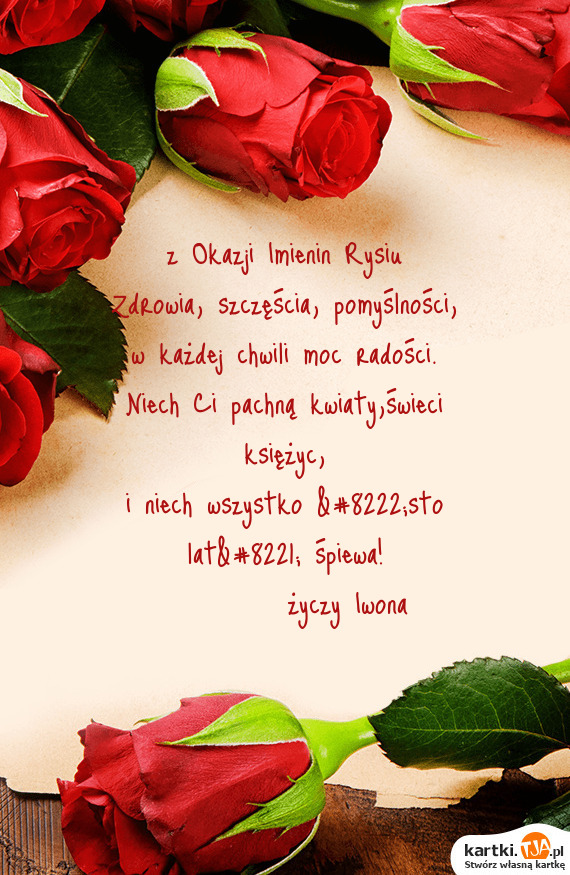 z Okazji Imienin Rysiu
Zdrowia, szczęścia, pomyślności,
w każdej chwili moc radości.
Niech Ci pachną kwiaty,świeci
księżyc,
i niech wszystko &#8222;sto
lat&#8221; śpiewa!
życzy Iwona
kartki.TJA.pl
Stwórz własną kartkę